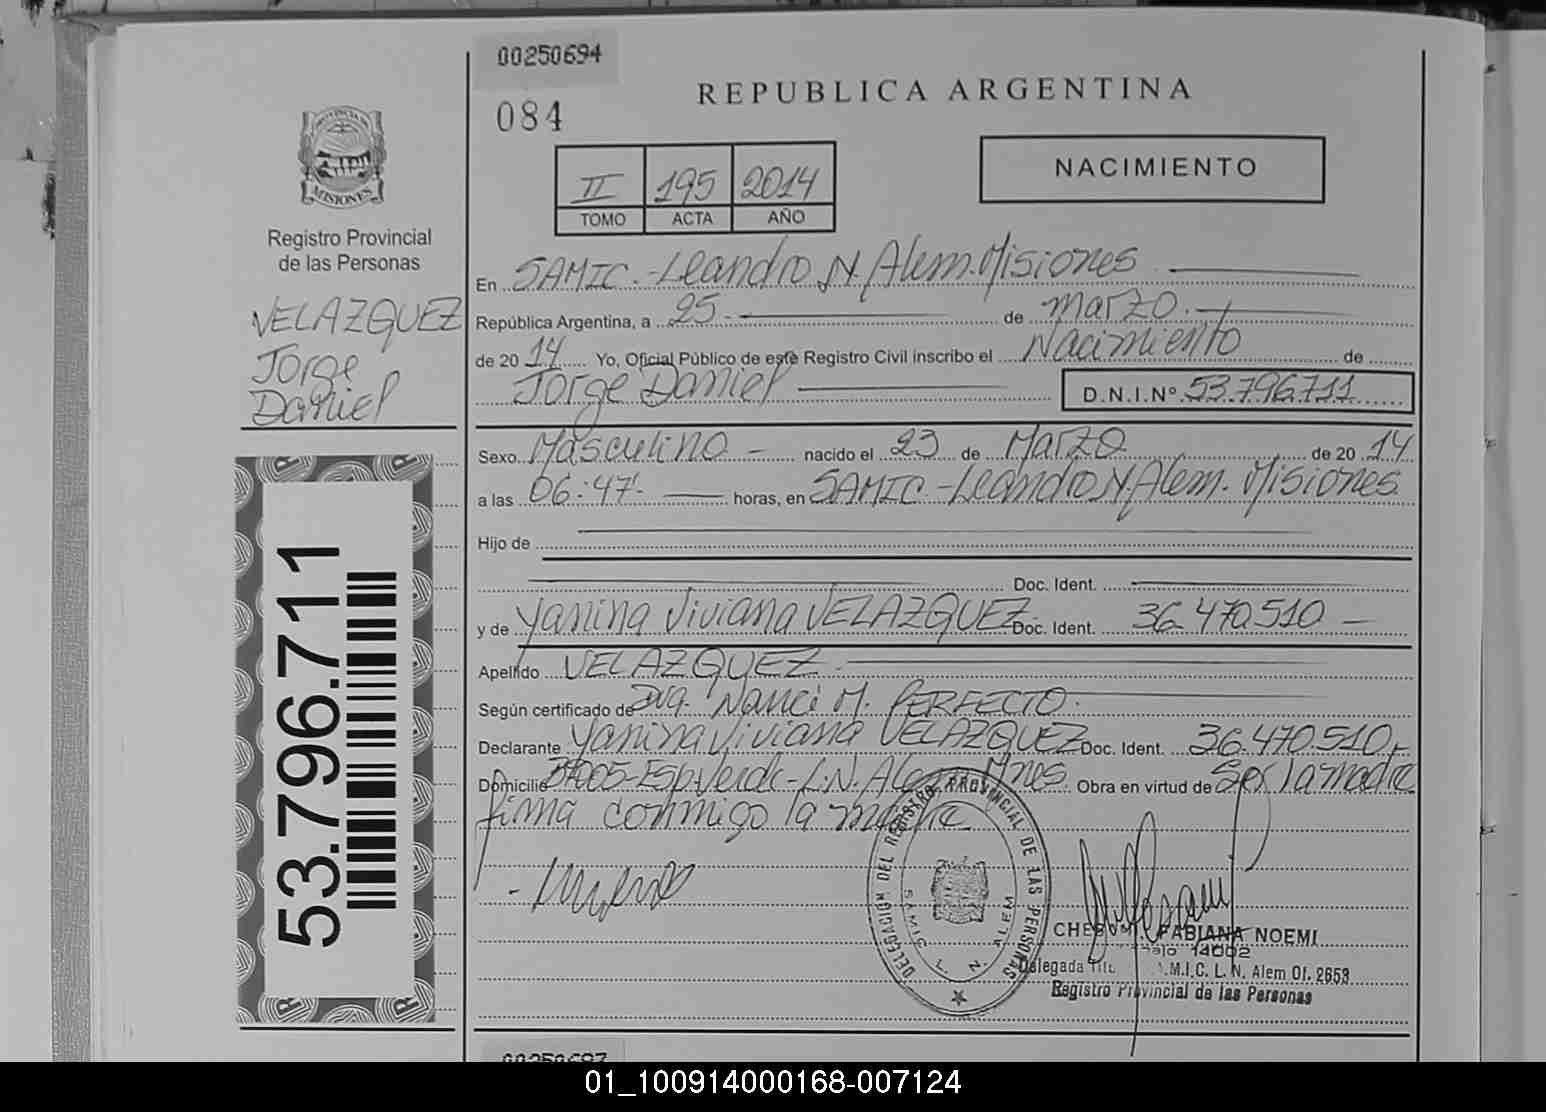 00250694
084
REPUBLICA ARGENTINA
NACIMIENTO
II 195 2014
TOMO ACTA AÑO
MISIONES
Registro Provincial
de las Personas
VELAZQUEZ
Jorge
Daniel
En SAMIC.-Leandro N. Alem. Misiones
República Argentina, a 25 de Marzo.
de 2014 Yo, Oficial Público de este Registro Civil inscribo el Nacimiento de
Jorge Daniel D.N.I.Nº 53.796.711
Sexo Masculino nacido el 23 de Marzo de 2014
a las 06:47 horas, en SAMIC-Leandro N. Alem. Misiones
Hijo de
Doc. Ident.
y de Yanina Viviana VELAZQUEZ Doc. Ident. 36.470.510
Apellido VELAZQUEZ.
Según certificado de Nanci M. PERFECTO.
Declarante Yanina Viviana VELAZQUEZ Doc. Ident. 36.470.510
Domicilio L.N. Alem Mnes. Obra en virtud de Ser la madre
firma conmigo la madre
53.796.711
DELEGACION DEL REGISTRO PROVINCIAL DE LAS PERSONAS
SAMIC L. N. ALEM
FABIANA NOEMI
14002
Delegada M.I.C. L. N. Alem Of. 2653
Registro Provincial de las Personas
00250697
01_100914000168-007124